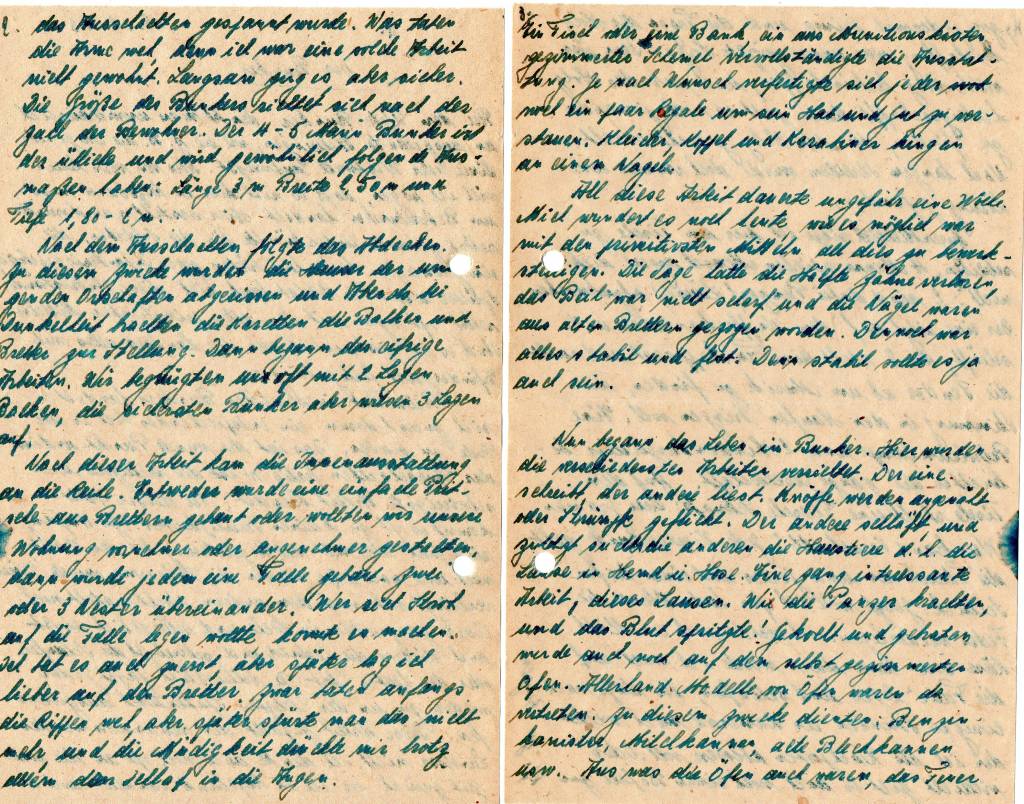 2. das Ausschachten gespannt wurde. Was taten
die Arme weh, denn ich war eine solche Arbeit
nicht gewohnt. Langsam ging es, aber sicher.
Die Größe des Bunkers richtet sich nach der
Zahl der Bewohner. Der 4-5 Mann Bunker ist
der übliche und wird gewöhnlich folgende Aus-
maßen haben: Länge 3 m Breite 2,50 m und
Tiefe 1,80 - 2 m.
Nach dem Ausschachten folgte das Abdecken.
Zu diesem Zwecke wurden die Häuser der umlie
genden Ortschaften abgerissen und Abends bei
Dunkelheit brachten die Karetten die Balken und
Bretter zur Stellung. Dann begann das eifrige
Arbeiten. Wir begnügten uns oft mit 2 Lagen
Balken, die sichersten Bunker aber wiesen 3 Lagen
auf.
Nach dieser Arbeit kam die Innenausstattung
an die Reihe. Entweder wurde eine einfache Prit-
sche aus Brettern gebaut oder wollten wir unsere
Wohnung vornehmer oder angenehmer gestalten,
dann wurde jedem eine Falle gebaut. Zwei
oder 3 Nester übereinander. Wer sich Stroh
auf die Falle legen wollte konnte es machen.
Ich tat es auch zuerst, aber später lag ich
lieber auf den Bretter, zwar taten anfangs
die Rippen weh, aber später spürte man das nicht
mehr, und die Müdigkeit drückte mir trotz
allem den Schlaf in die Augen.
3. Ein Tisch oder eine Bank, ein aus Munitionskisten
gezimmerter Schemel vervollständigte die Ausstat-
tung. Je nach Wunsch verfertigte sich jeder noch
wohl ein paar Regale um sein Hab und Gut zu ver-
stauen. Kleider, Koppel und Karabiner hingen
an einem Nagel.
All diese Arbeit dauerte ungefähr eine Woche.
Mich wundert es noch heute wie es möglich war
mit den primitivsten Mitteln all dies zu bewerk-
stelligen. Die Säge hatte die Hälfte Zähne verloren,
das Beil war nicht scharf und die Nägel waren
aus alten Brettern gezogen worden. Dennoch war
alles stabil und fest. Denn stabil sollte es ja
auch sein.
Nun begann das Leben im Bunker. Hier wurden
die verschiedensten Arbeiten verrichtet. Der eine
schreibt, der andere liest. Knöpfe werden angenäht
oder Strümpfe geflickt. Der andere schläft, und
zuletzt suchen die anderen die Haustiere d. h. die
Läuse in Hemd u. Hose. Eine ganz interessante
Arbeit, dieses Lausen. Wie die Panzer krachten,
und das Blut spritzte! Gekocht und gebraten
wurde auch noch auf den selbst gezimmerten
Öfen. Allerhand Modelle von Öfen waren da
vertreten. Zu diesem Zwecke dienten: Benzin-
kanister, Milchkannen, alte Blechkannen
usw. Aus was die Öfen auch waren, das Feuer